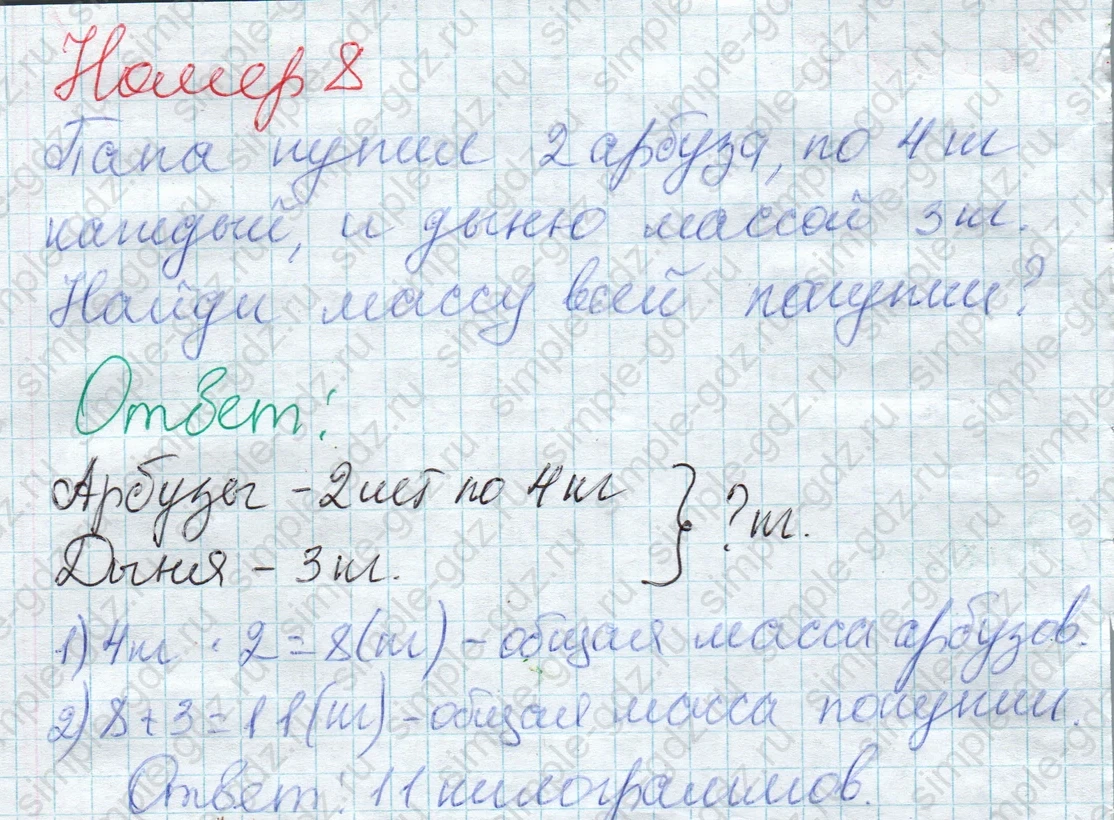 Номер 8
Папа купил 2 арбуза, по 4 кг
каждый, и дыню массой 3 кг.
Найди массу всей покупки?
Ответ:
Арбузы - 2 шт по 4 кг
? кг.
Дыня - 3 кг.
1) 4 кг · 2 = 8 (кг) - общая масса арбузов.
2) 8 + 3 = 11 (кг) - общая масса покупки.
Ответ: 11 килограммов.
simple-gdz.ru